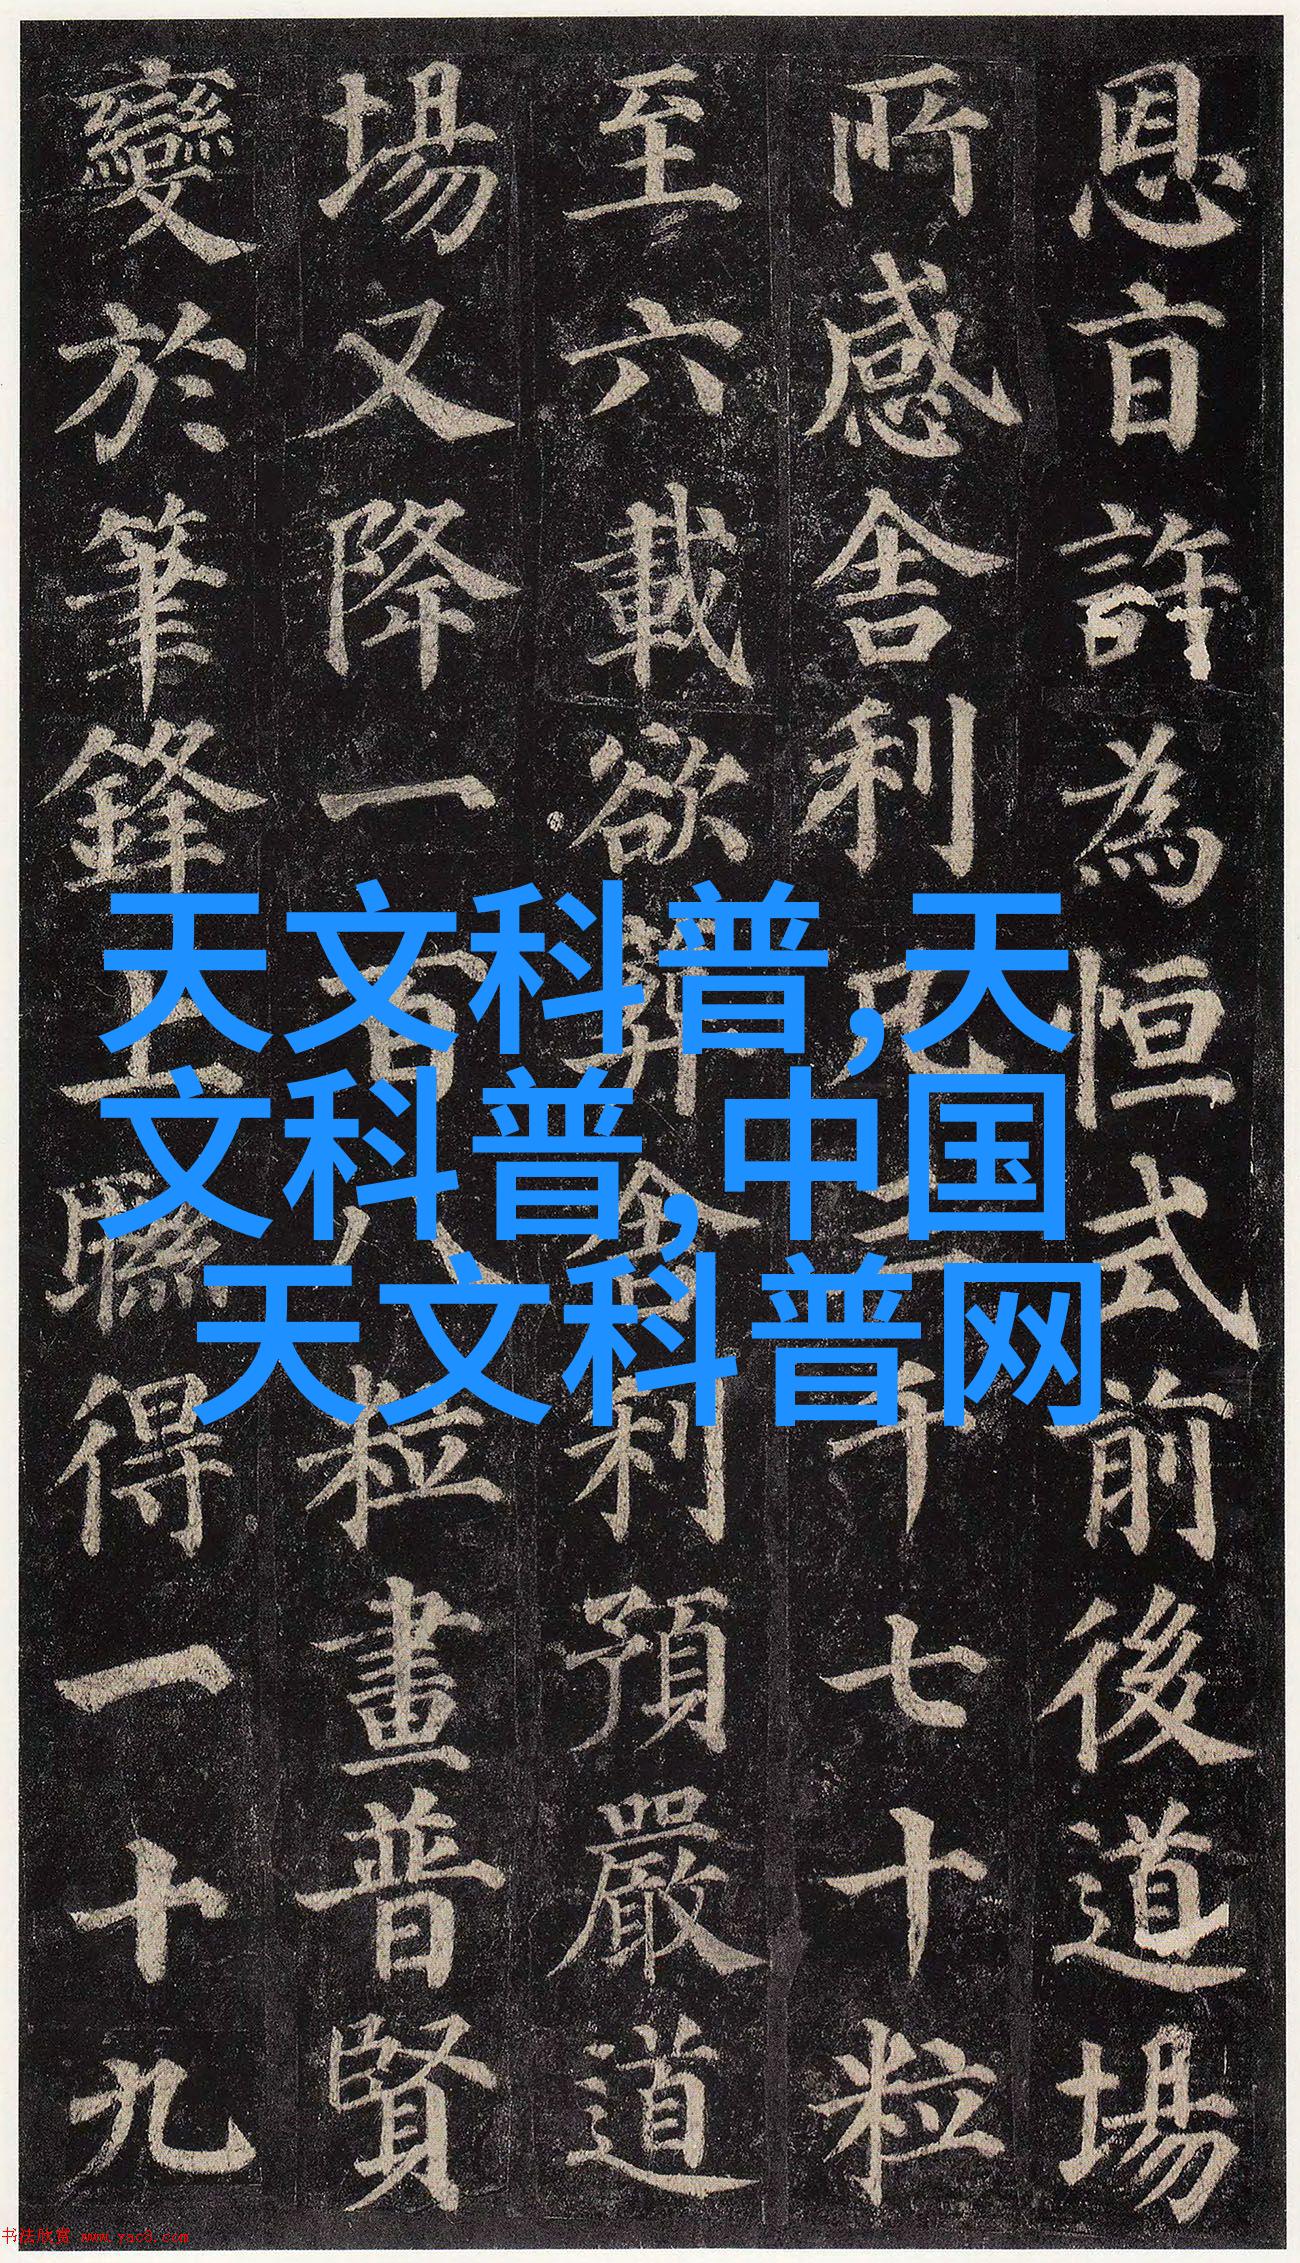 恩旨許為恒式前後道場
所感舍利凡三千七十粒
至六載欲葬舍利預嚴道
場又降一百八粒畫普賢
變於筆鋒上聯得一十九
天文科普,天
文科普,中国
天文科普网
书法欣赏 www.yac8.com